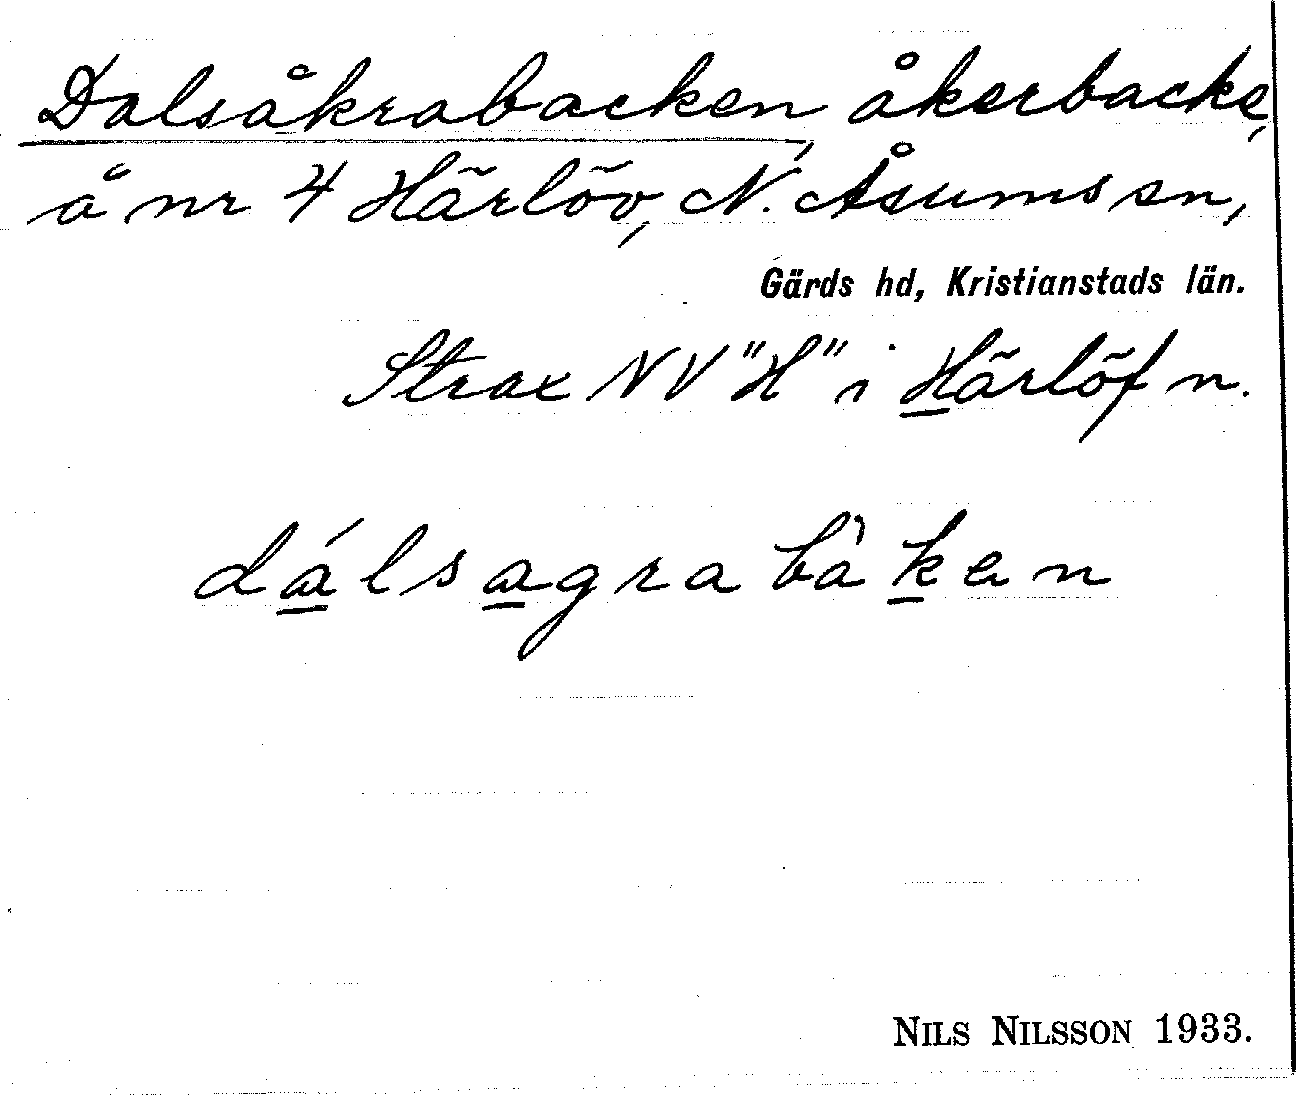 Dalsåkrabacken, åkerbacke,
å nr 4 Härlöv, N. Åsums sn,
Gärds hd, Kristianstads län.
Strax NV "H" i Härlöf n.
dálsagra bàken
NILS NILSSON 1933.